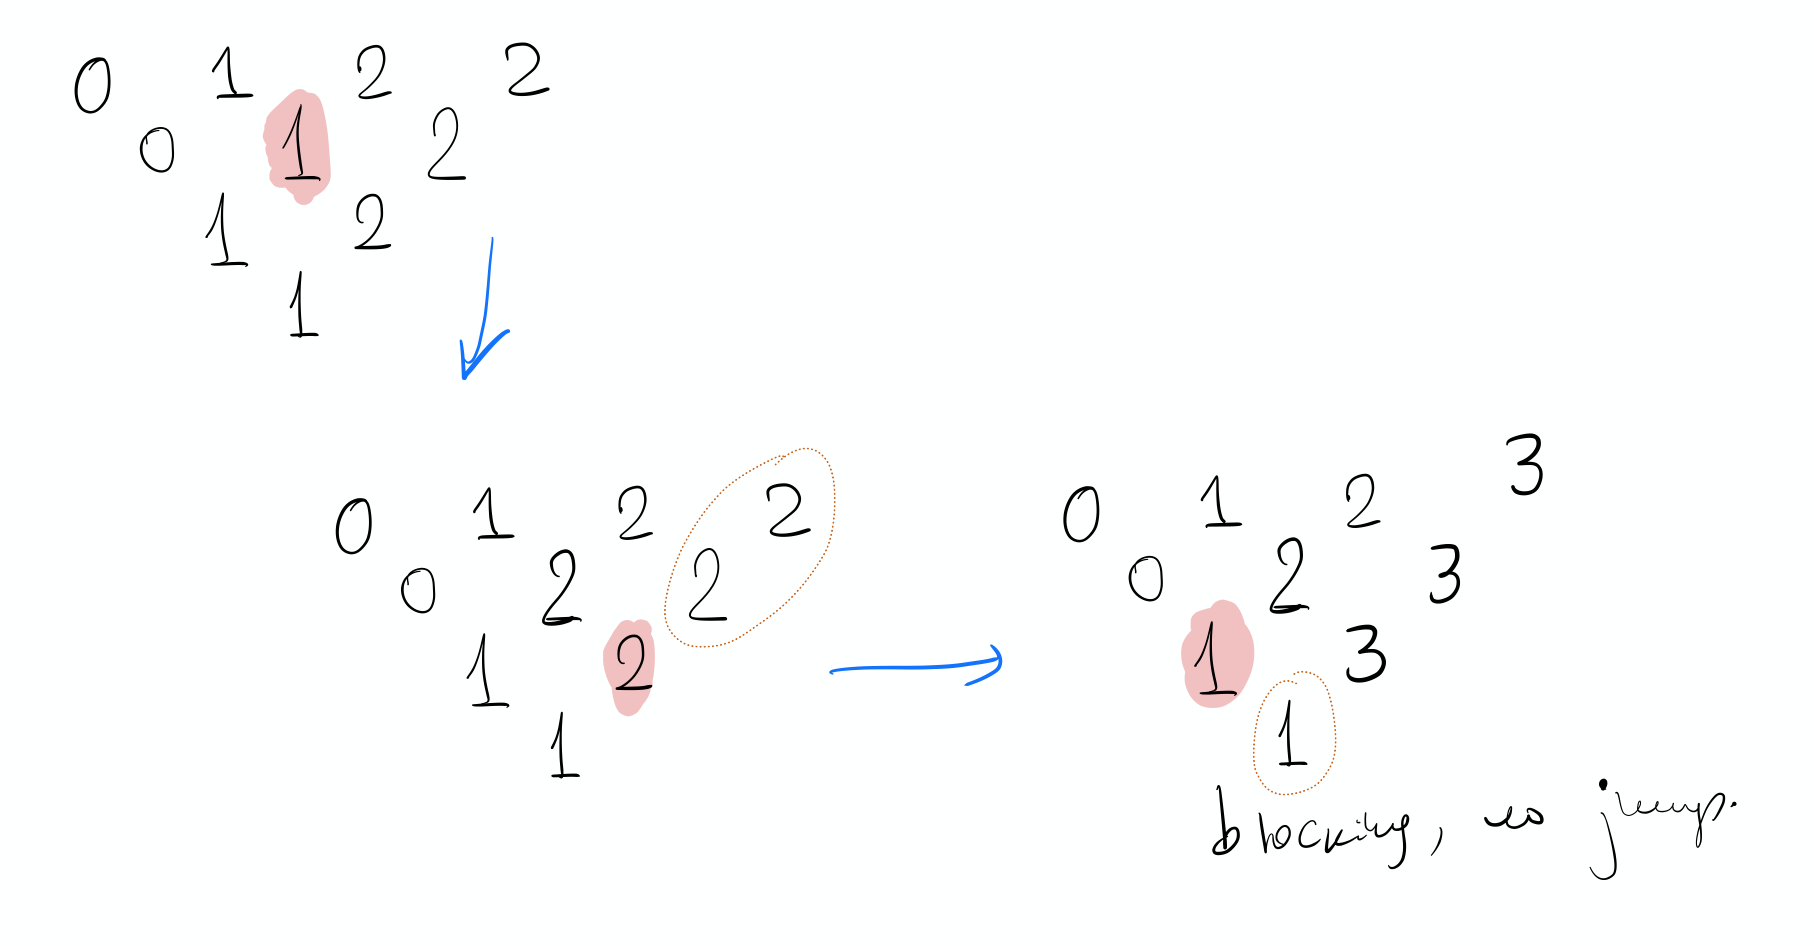 0 1 2 2
0 1 2
1 2
1
0 1 2 2
0 2 2
1 2
1
0 1 2 3
0 2 3
1 3
1
blocking, no jump.